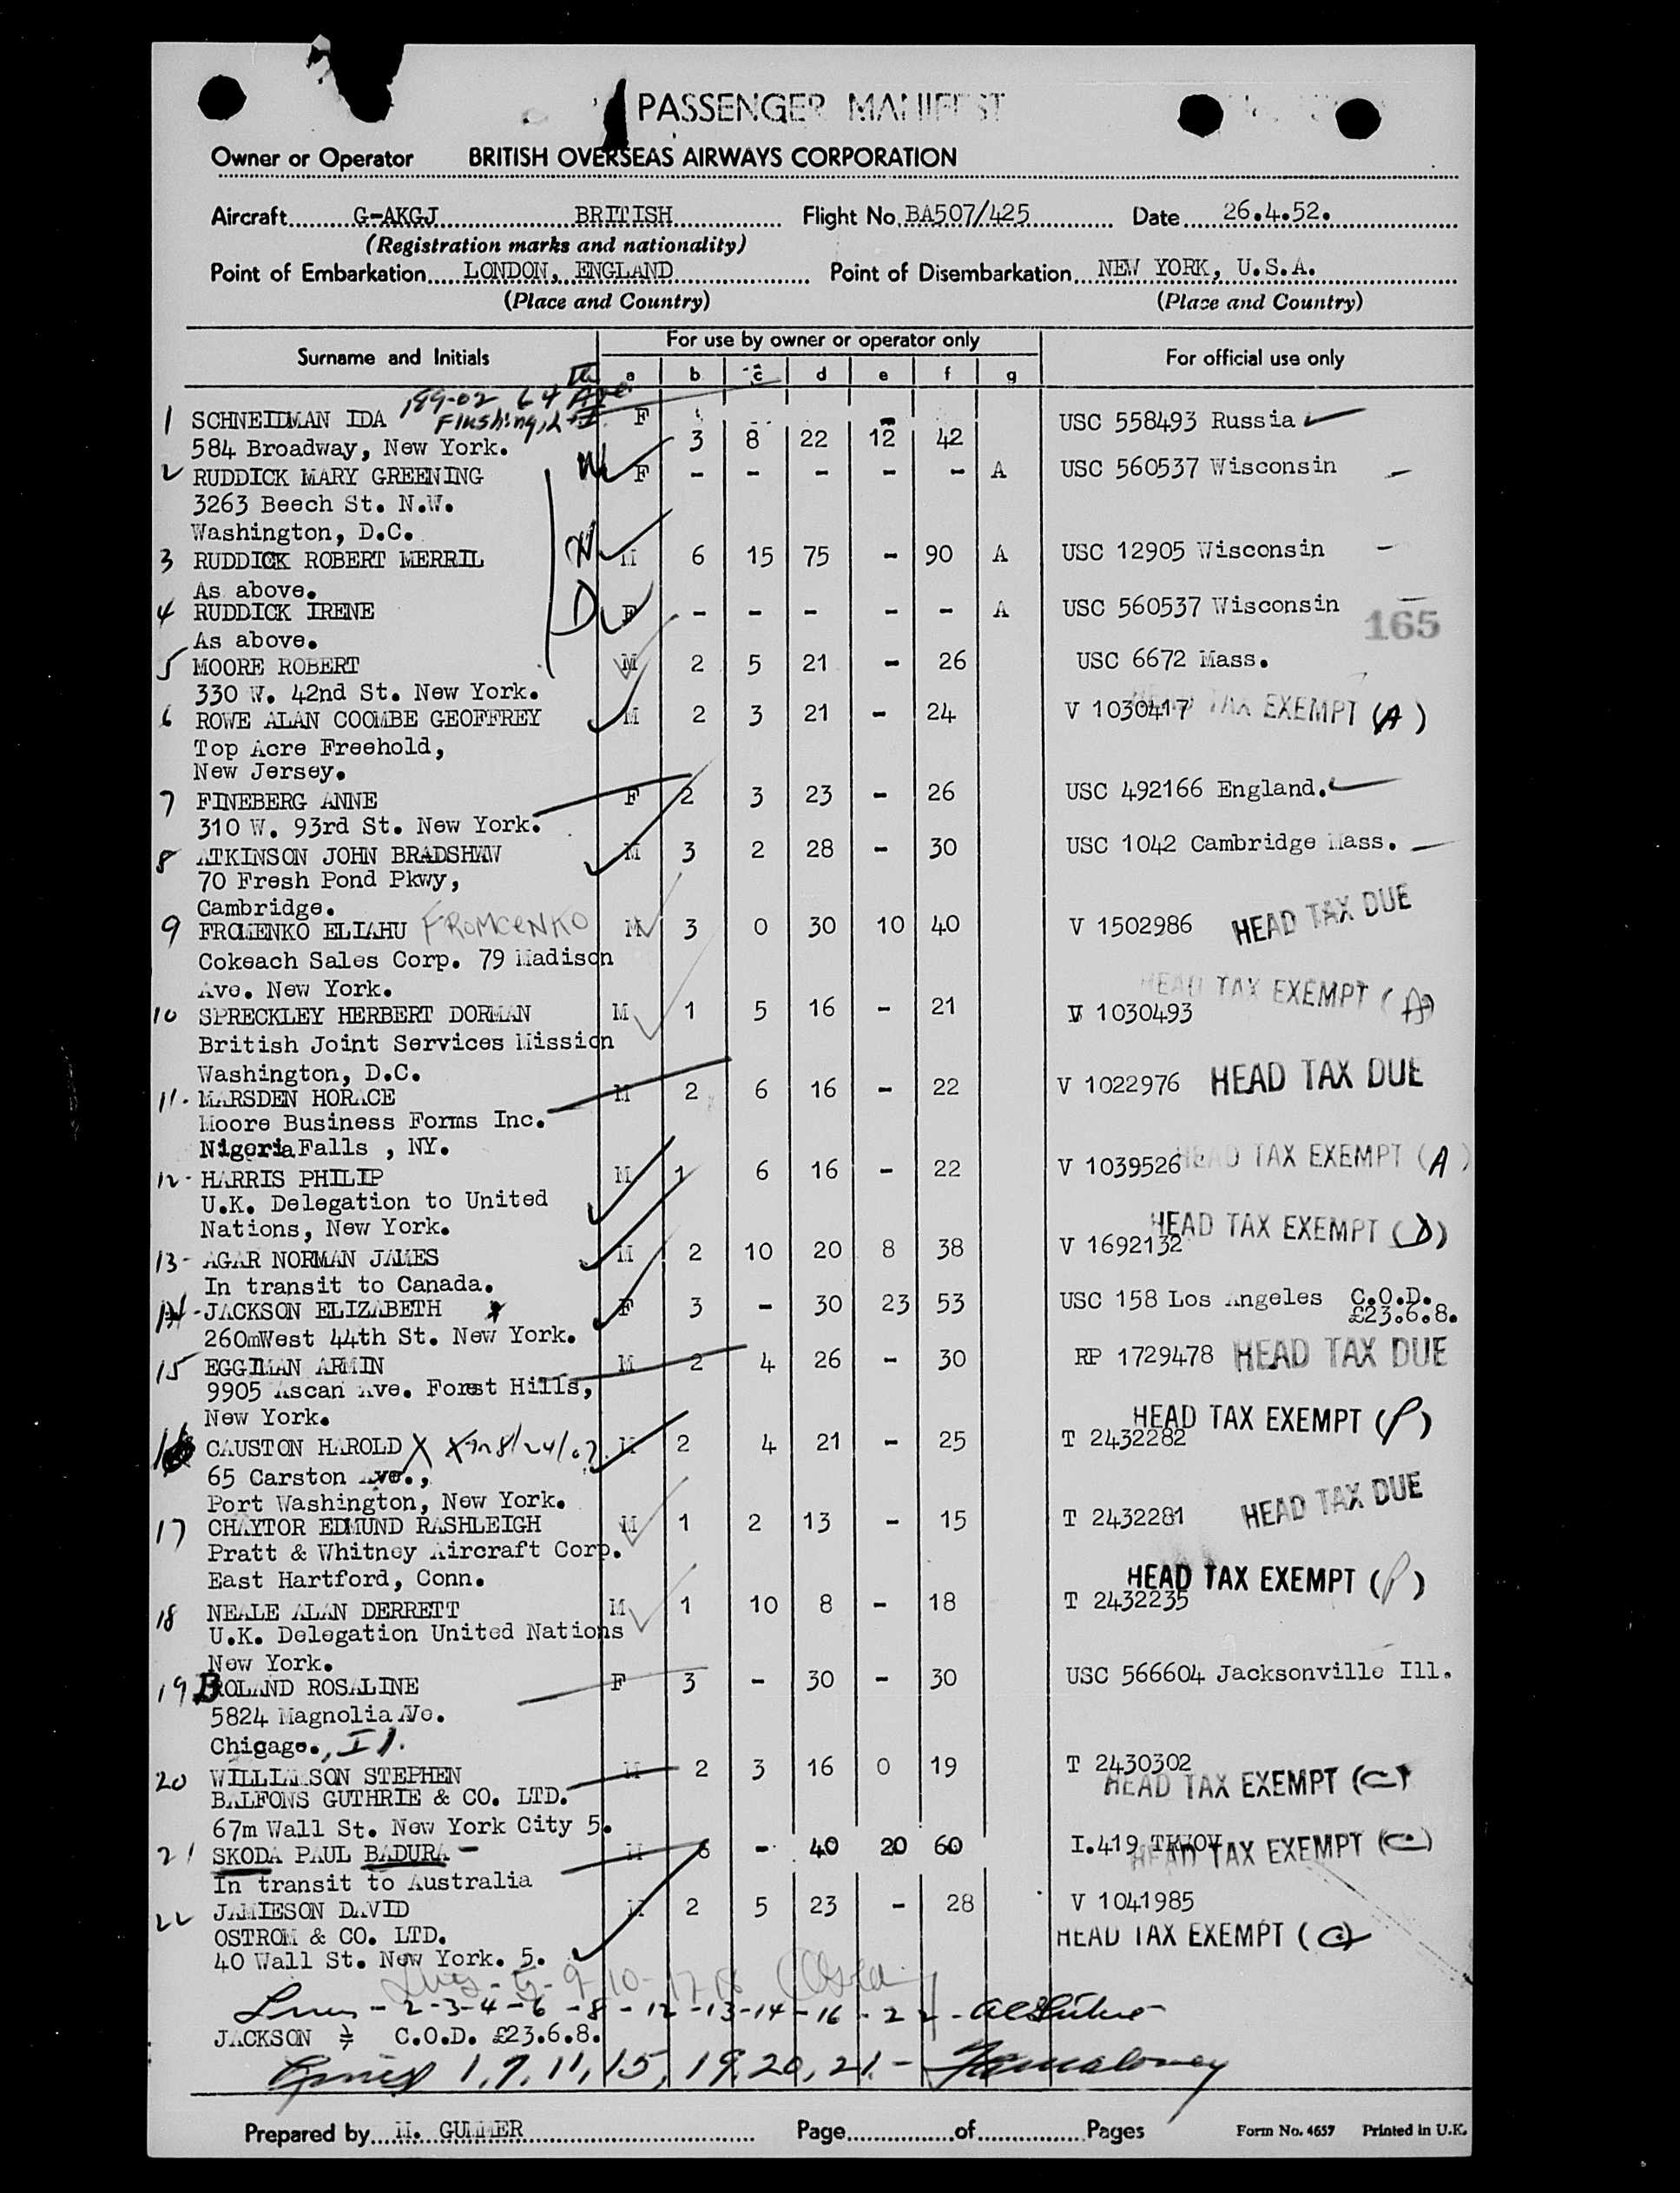 PASSENGER MANIFEST
Owner or Operator BRITISH OVERSEAS AIRWAYS CORPORATION
Aircraft G-AKGJ BRITISH Flight No. BA507/425 Date 26.4.52.
(Registration marks and nationality)
Point of Embarkation LONDON, ENGLAND Point of Disembarkation NEW YORK, U.S.A.
(Place and Country) (Place and Country)
Surname and Initials For use by owner or operator only For official use only
a b c d e f g
189-02 64th Ave
Flushing, L.I.
1 SCHNEIDMAN IDA F 3 8 22 12 42 USC 558493 Russia
584 Broadway, New York.
2 RUDDICK MARY GREENING W F - - - - - A USC 560537 Wisconsin
3263 Beech St. N.W.
Washington, D.C.
3 RUDDICK ROBERT MERRIL H M 6 15 75 - 90 A USC 12905 Wisconsin
As above.
4 RUDDICK IRENE D F - - - - - A USC 560537 Wisconsin
As above. 165
5 MOORE ROBERT M 2 5 21 - 26 USC 6672 Mass.
330 W. 42nd St. New York.
6 ROWE ALAN COOMBE GEOFFREY M 2 3 21 - 24 V 1030417 HEAD TAX EXEMPT (A)
Top Acre Freehold,
New Jersey.
7 FINEBERG ANNE F 2 3 23 - 26 USC 492166 England.
310 W. 93rd St. New York.
8 ATKINSON JOHN BRADSHAW M 3 2 28 - 30 USC 1042 Cambridge Mass.
70 Fresh Pond Pkwy,
Cambridge.
9 FROMENKO ELIAHU FROMCENKO M 3 0 30 10 40 V 1502986 HEAD TAX DUE
Cokeach Sales Corp. 79 Madison
Ave. New York.
10 SPRECKLEY HERBERT DORMAN M 1 5 16 - 21 V 1030493 HEAD TAX EXEMPT (A)
British Joint Services Mission
Washington, D.C.
11. MARSDEN HORACE M 2 6 16 - 22 V 1022976 HEAD TAX DUE
Moore Business Forms Inc.
Nigeria Falls , NY.
12- HARRIS PHILIP M 1 6 16 - 22 V 1039526 HEAD TAX EXEMPT (A)
U.K. Delegation to United
Nations, New York.
13- AGAR NORMAN JAMES M 2 10 20 8 38 V 1692132 HEAD TAX EXEMPT (D)
In transit to Canada.
14- JACKSON ELIZABETH F 3 - 30 23 53 USC 158 Los Angeles C.O.D.
£23.6.8.
260mWest 44th St. New York.
15 EGGIMAN ARMIN M 2 4 26 - 30 RP 1729478 HEAD TAX DUE
9905 Ascan Ave. Forest Hills,
New York.
16 CAUSTON HAROLD X M 2 4 21 - 25 T 2432282 HEAD TAX EXEMPT (P)
65 Carston Ave.,
Port Washington, New York.
17 CHAYTOR EDMUND RASHLEIGH M 1 2 13 - 15 T 2432281 HEAD TAX DUE
Pratt & Whitney Aircraft Corp.
East Hartford, Conn.
18 NEALE ALAN DERRETT M 1 10 8 - 18 T 2432235 HEAD TAX EXEMPT (P)
U.K. Delegation United Nations
New York.
19 BOLAND ROSALINE F 3 - 30 - 30 USC 566604 Jacksonville Ill.
5824 Magnolia Ave.
Chicago., Il.
20 WILLIAMSON STEPHEN M 2 3 16 0 19 T 2430302
BALFONS GUTHRIE & CO. LTD. HEAD TAX EXEMPT (C)
67m Wall St. New York City 5.
21 SKODA PAUL BADURA - M 6 - 40 20 60 I.419 HEAD TAX EXEMPT (C)
In transit to Australia
22 JAMIESON DAVID M 2 5 23 - 28 V 1041985
OSTROM & CO. LTD. HEAD TAX EXEMPT (C)
40 Wall St. New York. 5.
Lines - 5 - 9 - 10 - 17 18
Lines - 2-3-4-6-8-12-13-14-16-22-
JACKSON C.O.D. £23.6.8.
1, 7, 11, 15, 19, 20, 21 -
Prepared by M. GUMMER Page of Pages Form No. 4657 Printed in U.K.